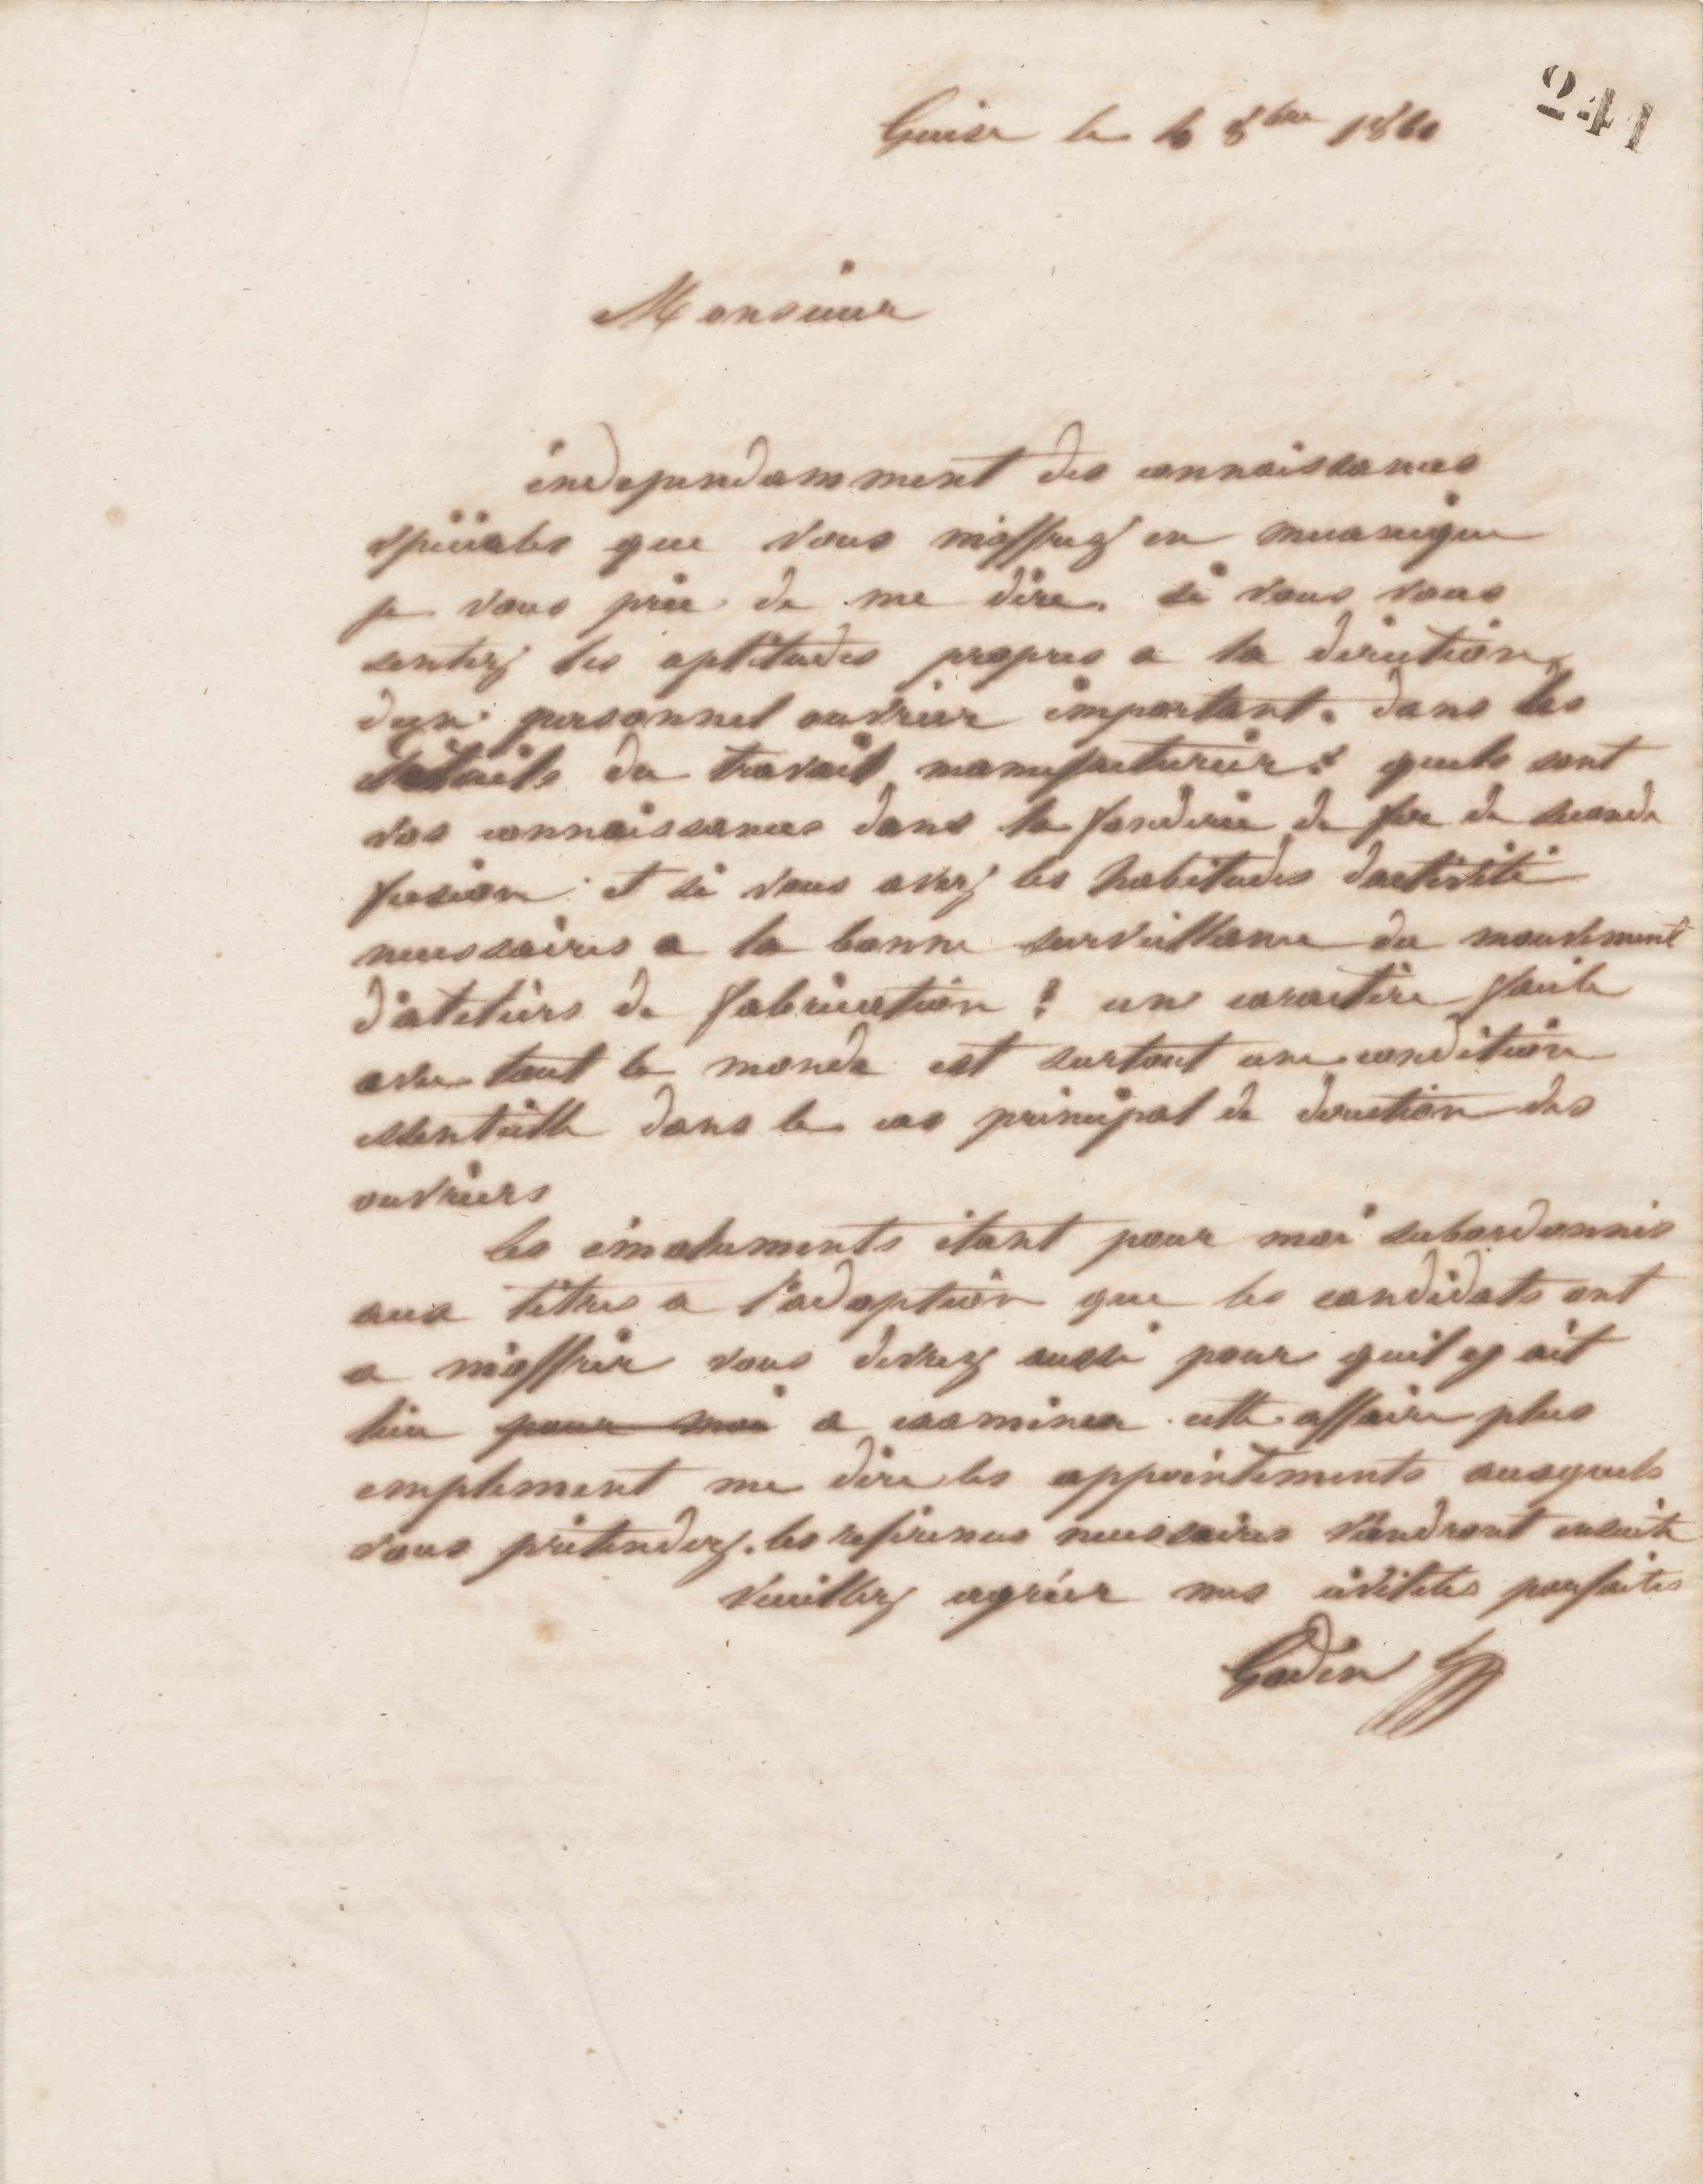 241
Guise le 8bre 1860
Monsieur
independamment des connaissances
speciales que vous m'offrez en mecanique
je vous prie de me dire. si vous vous
sentez les aptitudes propres a la direction
d'un personnel ouvrier important. dans les
details du travail manufacturier? quels sont
vos connaissances dans la fonderie de fer de seconde
fusion et si vous avez les habitudes d'activité
necessaires a la bonne surveillance du mouvement
d'ateliers de fabrication? un caractère facile
avec tout le monde est surtout une condition
essentielle dans le cas principal de direction des
ouvriers
les émoluments étant pour moi subordonnés
aux titres a l'adoption que les candidats ont
a m'offrir vous devrez aussi pour quil y ait
lieu pour moi a examiner cette affaire plus
emplement me dire les appointements auxquels
vous prétendez. les references necessaires viendront ensuite
veuillez agréer mes civilités parfaites
Godin